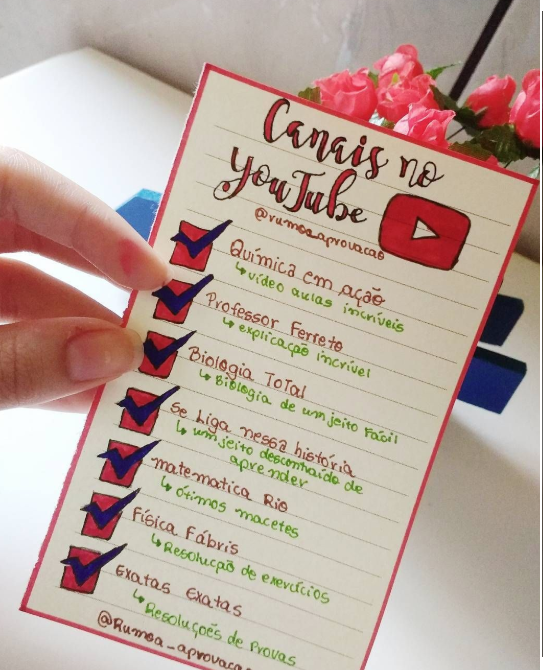 Canais no
YouTube
@rumoa_aprovacao
Química em ação
↳ vídeo aulas incríveis
Professor Ferreto
↳ explicação incrível
Biologia Total
↳ Biologia de um jeito Fácil
Se Liga nessa história
↳ um jeito descontraído de
aprender
matematica Rio
↳ Ótimos macetes
Física Fábris
↳ Resolução de exercícios
Exatas Exatas
↳ Resoluções de Provas
@Rumoa_aprovacao